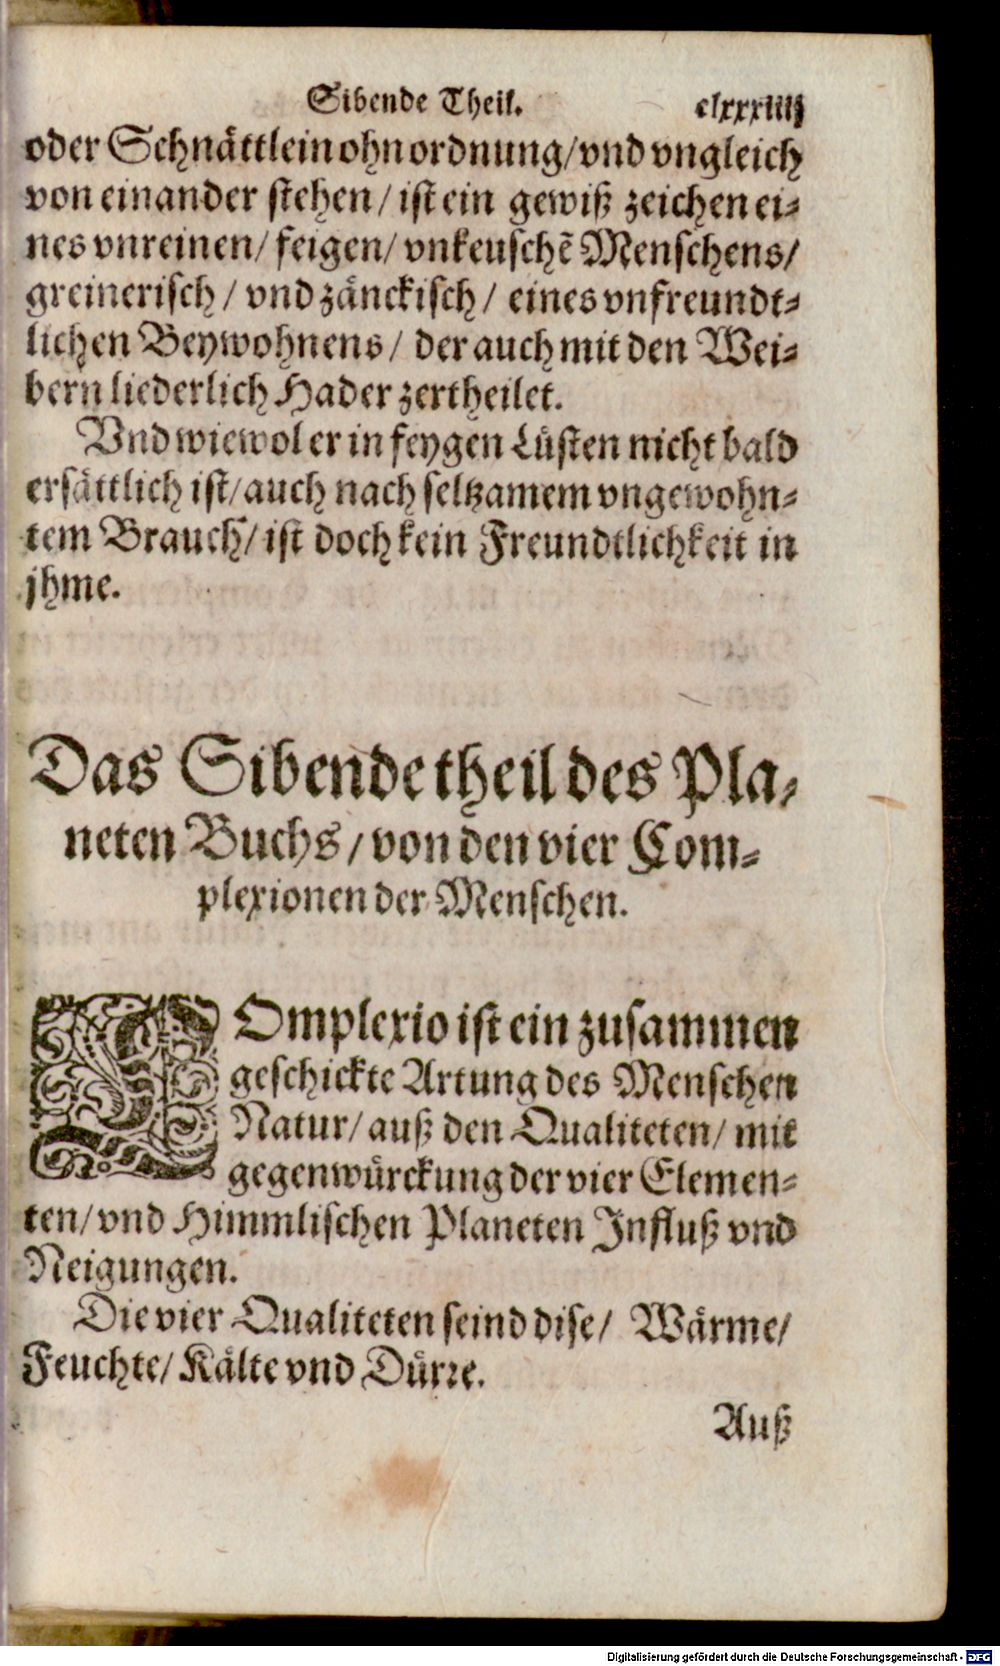 Sibende Theil. clxxxiiij
oder Schnättlein ohn ordnung/vnd vngleich
von einander stehen/ ist ein gewiß zeichen ei-
nes vnreinen/ feigen/ vnkeuschẽ Menschens/
greinerisch/ vnd zänckisch/ eines vnfreundt-
lichen Beywohnens/ der auch mit den Wei-
bern liederlich Hader zertheilet.
Vnd wiewol er in feygen Lüsten nicht bald
ersättlich ist/auch nach seltzamem vngewohn-
tem Brauch/ ist doch kein Freundtlichkeit in
jhme.
Das Sibende theil des Pla-
neten Buchs/ von den vier Com-
plexionen der Menschen.
COmplexio ist ein zusammen
geschickte Artung des Menschen
Natur/ auß den Qualiteten/ mit
gegenwürckung der vier Elemen-
ten/vnd Himmlischen Planeten Influß vnd
Neigungen.
Die vier Qualiteten seind dise/ Wärme/
Feuchte/ Kälte vnd Dürre.
Auß
Digitalisierung gefördert durch die Deutsche Forschungsgemeinschaft - DFG